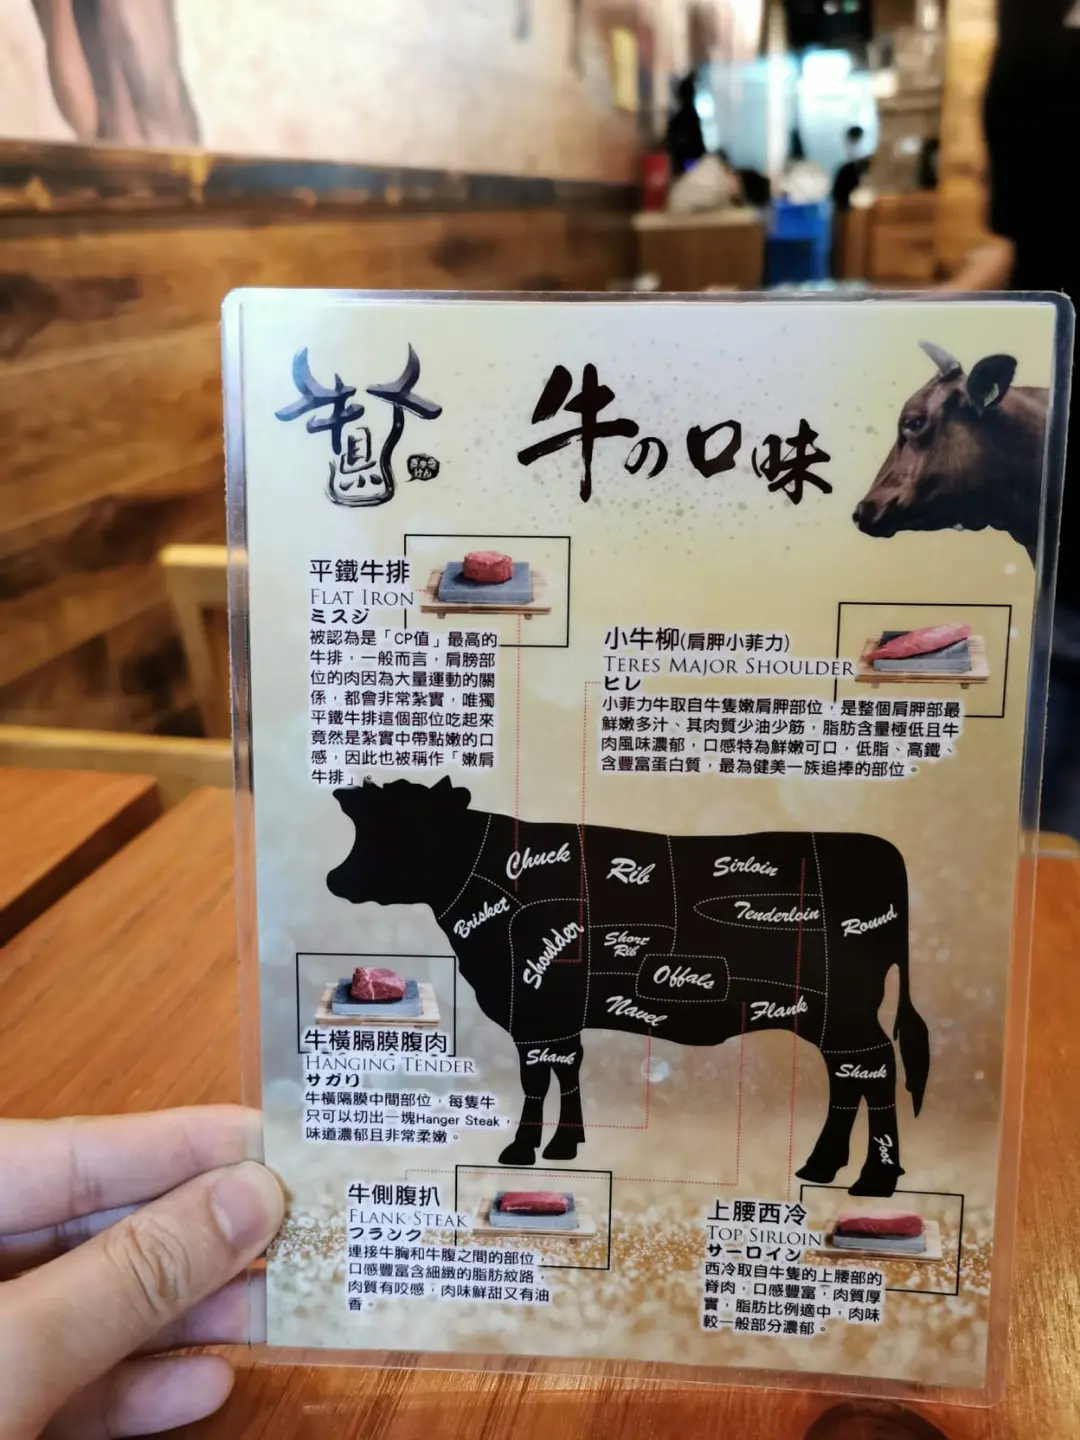 牛の口味
平鐵牛排
FLAT IRON
ミスジ
被認為是「CP值」最高的
牛排，一般而言，肩膀部
位的肉因為大量運動的關
係，都會非常紮實，唯獨
平鐵牛排這個部位吃起來
竟然是紮實中帶點嫩的口
感，因此也被稱作「嫩肩
牛排」。
小牛柳(肩胛小菲力)
TERES MAJOR SHOULDER
ヒレ
小菲力牛取自牛隻嫩肩胛部位，是整個肩胛部最
鮮嫩多汁、其肉質少油少筋，脂肪含量極低且牛
肉風味濃郁，口感特為鮮嫩可口，低脂、高鐵、
含豐富蛋白質，最為健美一族追捧的部位。
Chuck
Rib
Sirloin
Tenderloin
Round
Brisket
Shoulder
Short
Rib
Offals
Navel
Flank
Shank
Shank
Foot
牛橫膈膜腹肉
HANGING TENDER
サガリ
牛橫隔膜中間部位，每隻牛
只可以切出一塊Hanger Steak，
味道濃郁且非常柔嫩。
牛側腹扒
FLANK STEAK
フランク
連接牛胸和牛腹之間的部位，
口感豐富含細緻的脂肪紋路，
肉質有咬感，肉味鮮甜又有油
香。
上腰西冷
TOP SIRLOIN
サーロイン
西冷取自牛隻的上腰部的
脊肉，口感豐富，肉質厚
實，脂肪比例適中，肉味
較一般部分濃郁。